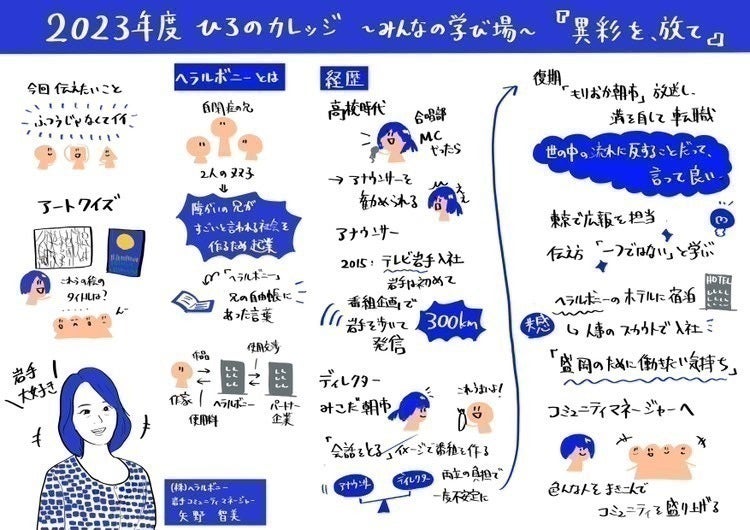 2023年度 ひろのカレッジ ～みんなの学び場～『異彩を、放て』
今回 伝えたいこと
ふつうじゃなくてイイ
アートクイズ
これらの絵の
タイトルは?
ん～
岩手
大好き
ヘラルボニーとは
自閉症の兄
2人の双子
障がいの兄が
すごいと言われる社会を
作るため 起業
「ヘラルボニー」
兄の自由帳に
あった言葉
作品
使用料
使用交渉
作家
ヘラルボニー
パートナー
企業
(株)ヘラルボニー
岩手コミュニティマネージャー
矢野 智美
経歴
高校時代
合唱部
MC
やったら
え
→アナウンサーを
勧められる
アナウンサー
2015:テレビ岩手入社
岩手は初めて
番組企画で
岩手を歩いて
発信
300km
ディレクター
みこだ朝市
これうまいよ!
「会話をとる」イメージで番組を作る
アナウンサー
ディレクター
両立の負担で
一度不安定に
復期
「もりおか朝市」放送し、
満を自して転職
世の中の流れに反することだって、
言って良い
東京で広報を担当
伝え方「一つではない」と学ぶ
HOTEL
ヘラルボニーのホテルに宿泊
来感
↳人事のスカウトで入社
「盛岡のために働きたい気持ち」
コミュニティマネージャーへ
色んな人をまきこんで
コミュニティを盛り上げる